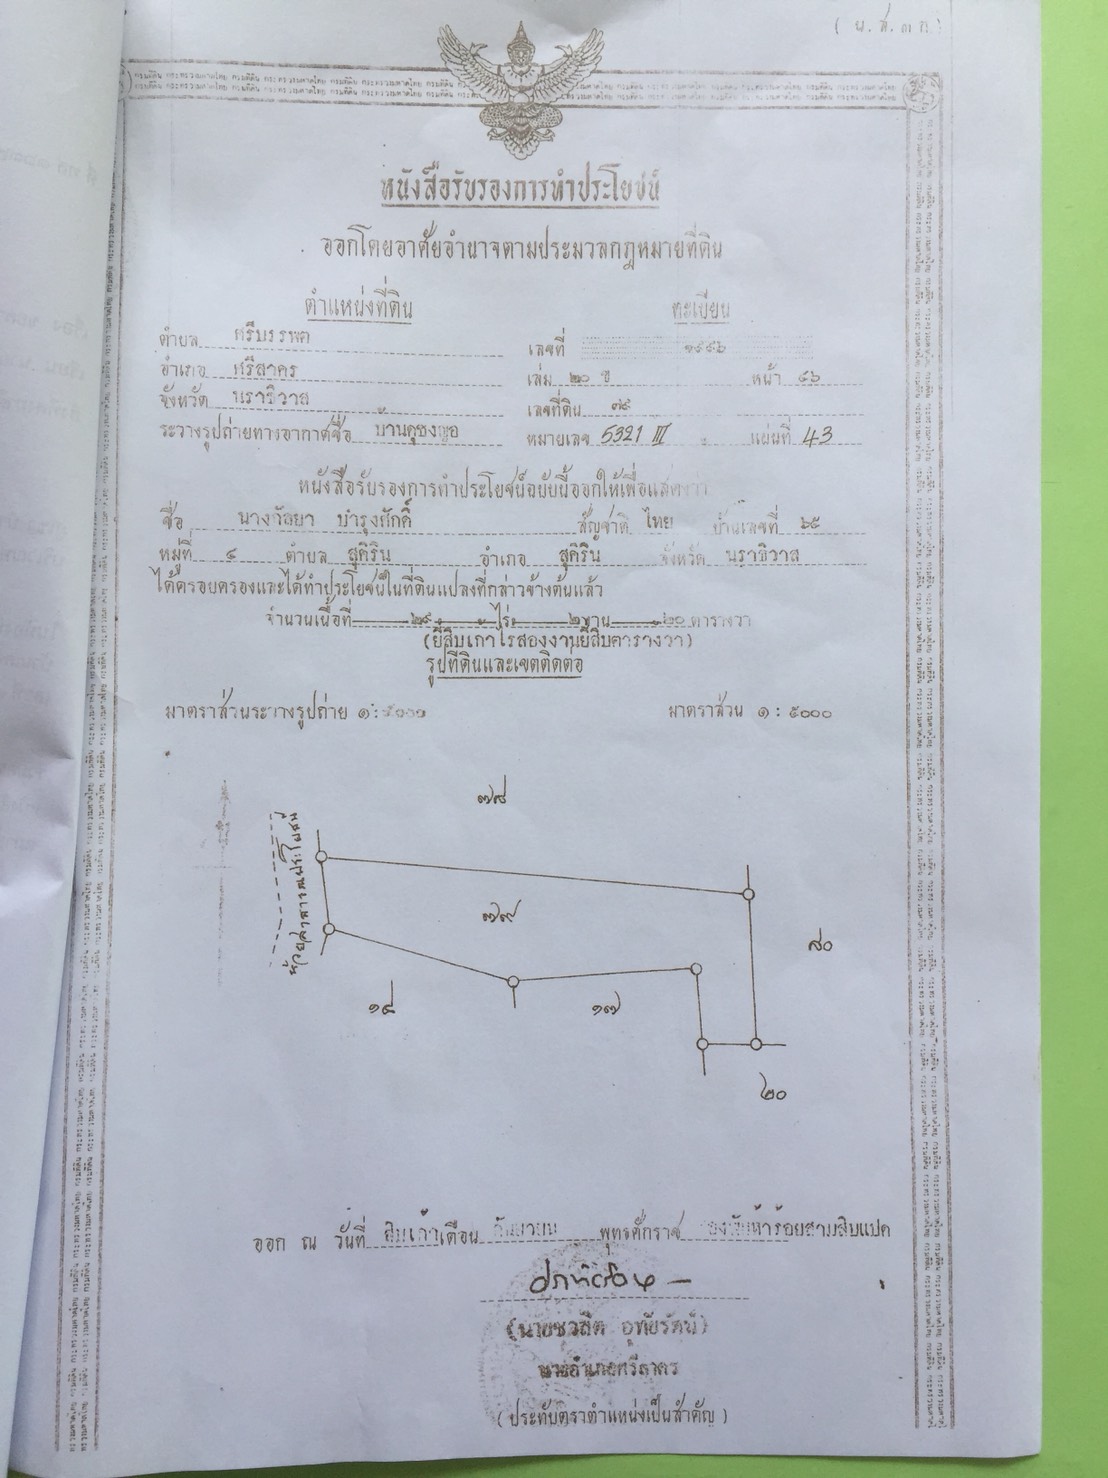 (น.ส.๓ ก.)
หนังสือรับรองการทำประโยชน์
ออกโดยอาศัยอำนาจตามประมวลกฎหมายที่ดิน
ตำแหน่งที่ดิน ทะเบียน
ตำบล ศรีบรรพต เลขที่ ๑๙๙๖
อำเภอ ศรีสาคร เล่ม ๒๐ ข หน้า ๔๖
จังหวัด นราธิวาส เลขที่ดิน ๗๙
ระวางรูปถ่ายทางอากาศชื่อ หมายเลข 5321 III แผ่นที่ 43
หนังสือรับรองการทำประโยชน์ฉบับนี้ออกให้เพื่อแสดงว่า
ชื่อ นางวัลยา บำรุงศักดิ์ สัญชาติ ไทย บ้านเลขที่ ๖๕
หมู่ที่ ๔ ตำบล สุคิริน อำเภอ สุคิริน จังหวัด นราธิวาส
ได้ครอบครองและได้ทำประโยชน์ในที่ดินแปลงที่กล่าวข้างต้นแล้ว
จำนวนเนื้อที่ ๒๙ ไร่ ๒ งาน ๒๐ ตารางวา
(ยี่สิบเก้าไร่สองงานยี่สิบตารางวา)
รูปที่ดินและเขตติดต่อ
มาตราส่วนระวางรูปถ่าย ๑:๕๐๐๐ มาตราส่วน ๑ : ๕๐๐๐
๗๘
ห้วยสาธารณประโยชน์
๗๙
๘๐
๑๘ ๑๗
๒๐
ออก ณ วันที่ สิบเก้า เดือน กันยายน พุทธศักราช สองพันห้าร้อยสามสิบแปด
(นายชวลิต อุทัยรัตน์)
นายอำเภอศรีสาคร
(ประทับตราตำแหน่งเป็นสำคัญ)